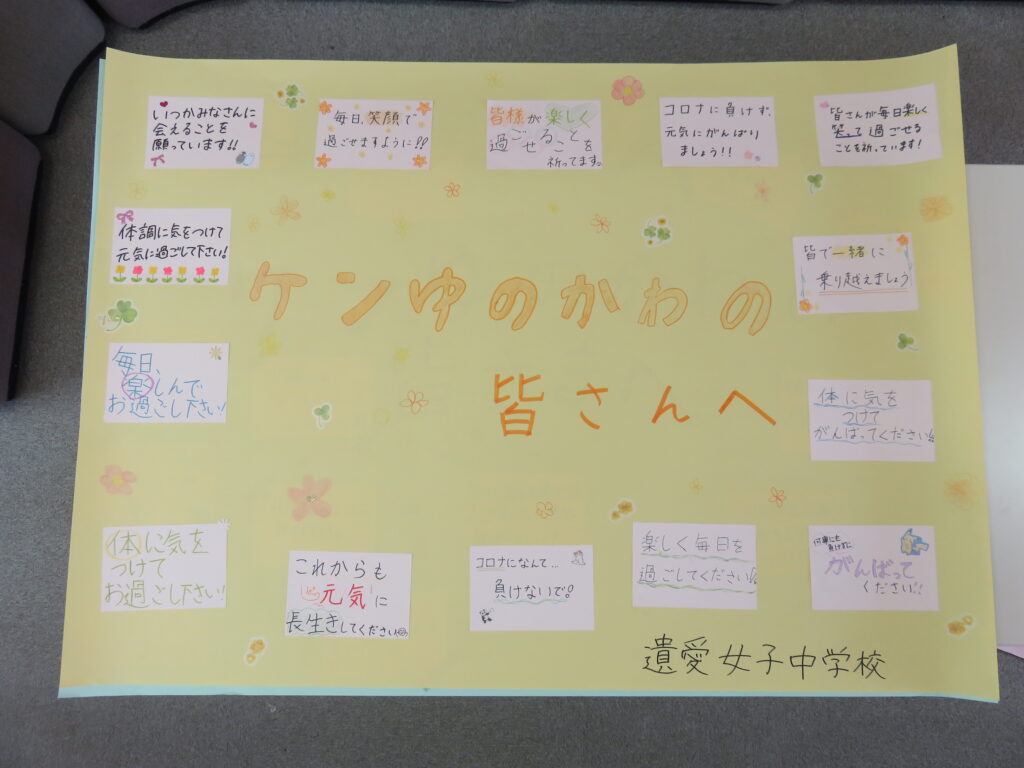 いつかみなさんに
会えることを
願っています!!
毎日、笑顔で
過ごせますように!!
皆様が楽しく
過ごせることを
祈ってます。
コロナに負けず、
元気にがんばり
ましょう!!
皆さんが毎日楽しく
笑って過ごせる
ことを祈っています!
体調に気をつけて
元気に過ごして下さい!
皆で一緒に
乗り越えましょう
ケンゆのかわの
皆さんへ
毎日、
楽しんで
お過ごし下さい!
体に気を
つけて
がんばってください!
体に気を
つけて
お過ごし下さい!
これからも
元気に
長生きしてください
コロナになんて...
負けないで!
楽しく毎日を
過ごしてください!!
何事にも
負けずに
がんばって
ください!!
遺愛女子中学校